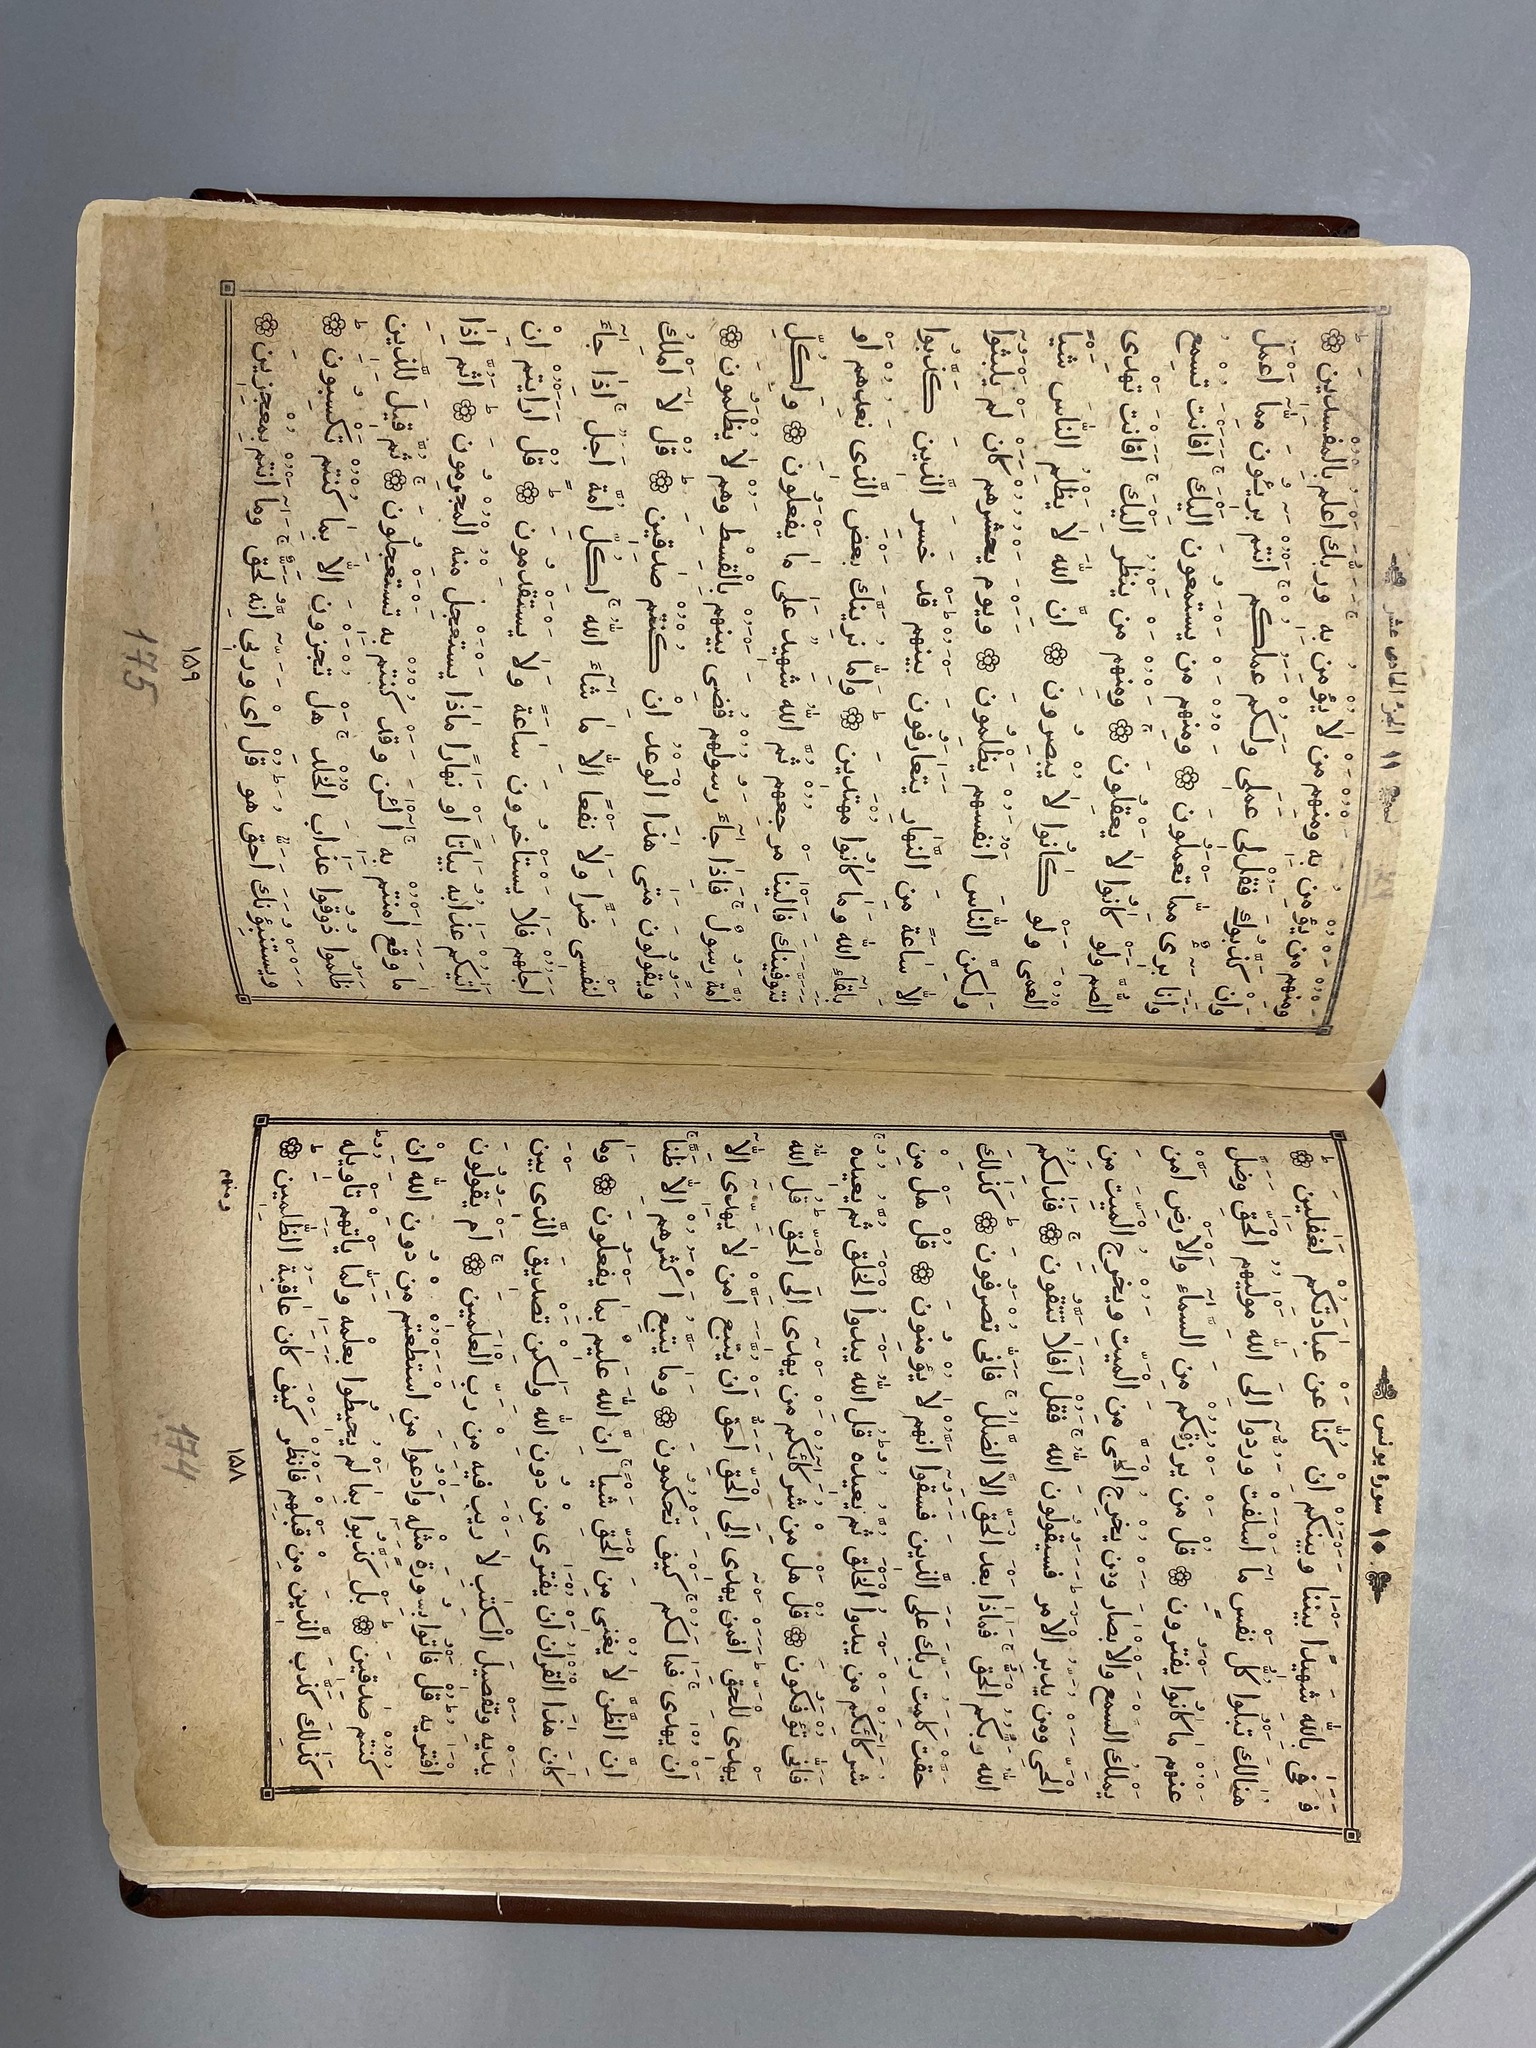 ١٠ سورة يونس
فكفى بالله شهيدا بيننا وبينكم ان كنا عن عبادتكم لغفلين ۞
هنالك تبلوا كل نفس ما اسلفت وردوا الى الله موليهم الحق وضل
عنهم ما كانوا يفترون ۞ قل من يرزقكم من السماء والارض امن
يملك السمع والابصار ومن يخرج الحى من الميت ويخرج الميت من
الحى ومن يدبر الامر فسيقولون الله فقل افلا تتقون ۞ فذلكم
الله ربكم الحق فماذا بعد الحق الا الضلل فانى تصرفون ۞ كذلك
حقت كلمت ربك على الذين فسقوا انهم لا يؤمنون ۞ قل هل من
شركائكم من يبدوا الخلق ثم يعيده قل الله يبدوا الخلق ثم يعيده
فانى تؤفكون ۞ قل هل من شركائكم من يهدى الى الحق قل الله
يهدى للحق افمن يهدى الى الحق احق ان يتبع امن لا يهدى الا
ان يهدى فما لكم كيف تحكمون ۞ وما يتبع اكثرهم الا ظنا
ان الظن لا يغنى من الحق شيأ ان الله عليم بما يفعلون ۞ وما
كان هذا القران ان يفترى من دون الله ولكن تصديق الذى بين
يديه وتفصيل الكتب لا ريب فيه من رب العلمين ۞ ام يقولون
افتريه قل فاتوا بسورة مثله وادعوا من استطعتم من دون الله ان
كنتم صدقين ۞ بل كذبوا بما لم يحيطوا بعلمه ولما ياتهم تاويله
كذلك كذب الذين من قبلهم فانظر كيف كان عاقبة الظلمين ۞
ومنهم
١٥٨
174
١١ الجزء الحادى عشر
ومنهم من يؤمن به ومنهم من لا يؤمن به وربك اعلم بالمفسدين ۞
وان كذبوك فقل لى عملى ولكم عملكم انتم بريؤن مما اعمل
وانا برى مما تعملون ۞ ومنهم من يستمعون اليك افانت تسمع
الصم ولو كانوا لا يعقلون ۞ ومنهم من ينظر اليك افانت تهدى
العمى ولو كانوا لا يبصرون ۞ ان الله لا يظلم الناس شيأ
ولكن الناس انفسهم يظلمون ۞ ويوم يحشرهم كان لم يلبثوا
الا ساعة من النهار يتعارفون بينهم قد خسر الذين كذبوا
بلقاء الله وما كانوا مهتدين ۞ واما نرينك بعض الذى نعدهم او
نتوفينك فالينا مرجعهم ثم الله شهيد على ما يفعلون ۞ ولكل
امة رسول فاذا جاء رسولهم قضى بينهم بالقسط وهم لا يظلمون ۞
ويقولون متى هذا الوعد ان كنتم صدقين ۞ قل لا املك
لنفسى ضرا ولا نفعا الا ما شاء الله لكل امة اجل اذا جاء
اجلهم فلا يستاخرون ساعة ولا يستقدمون ۞ قل ارايتم ان
اتيكم عذابه بياتا او نهارا ماذا يستعجل منه المجرمون ۞ اثم اذا
ما وقع امنتم به آلئن وقد كنتم به تستعجلون ۞ ثم قيل للذين
ظلموا ذوقوا عذاب الخلد هل تجزون الا بما كنتم تكسبون ۞
ويستنبؤنك احق هو قل اى وربى انه لحق وما انتم بمعجزين ۞
١٥٩
175